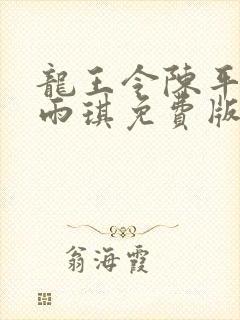 龍王令陳平
雨琪免費版
翁海霞